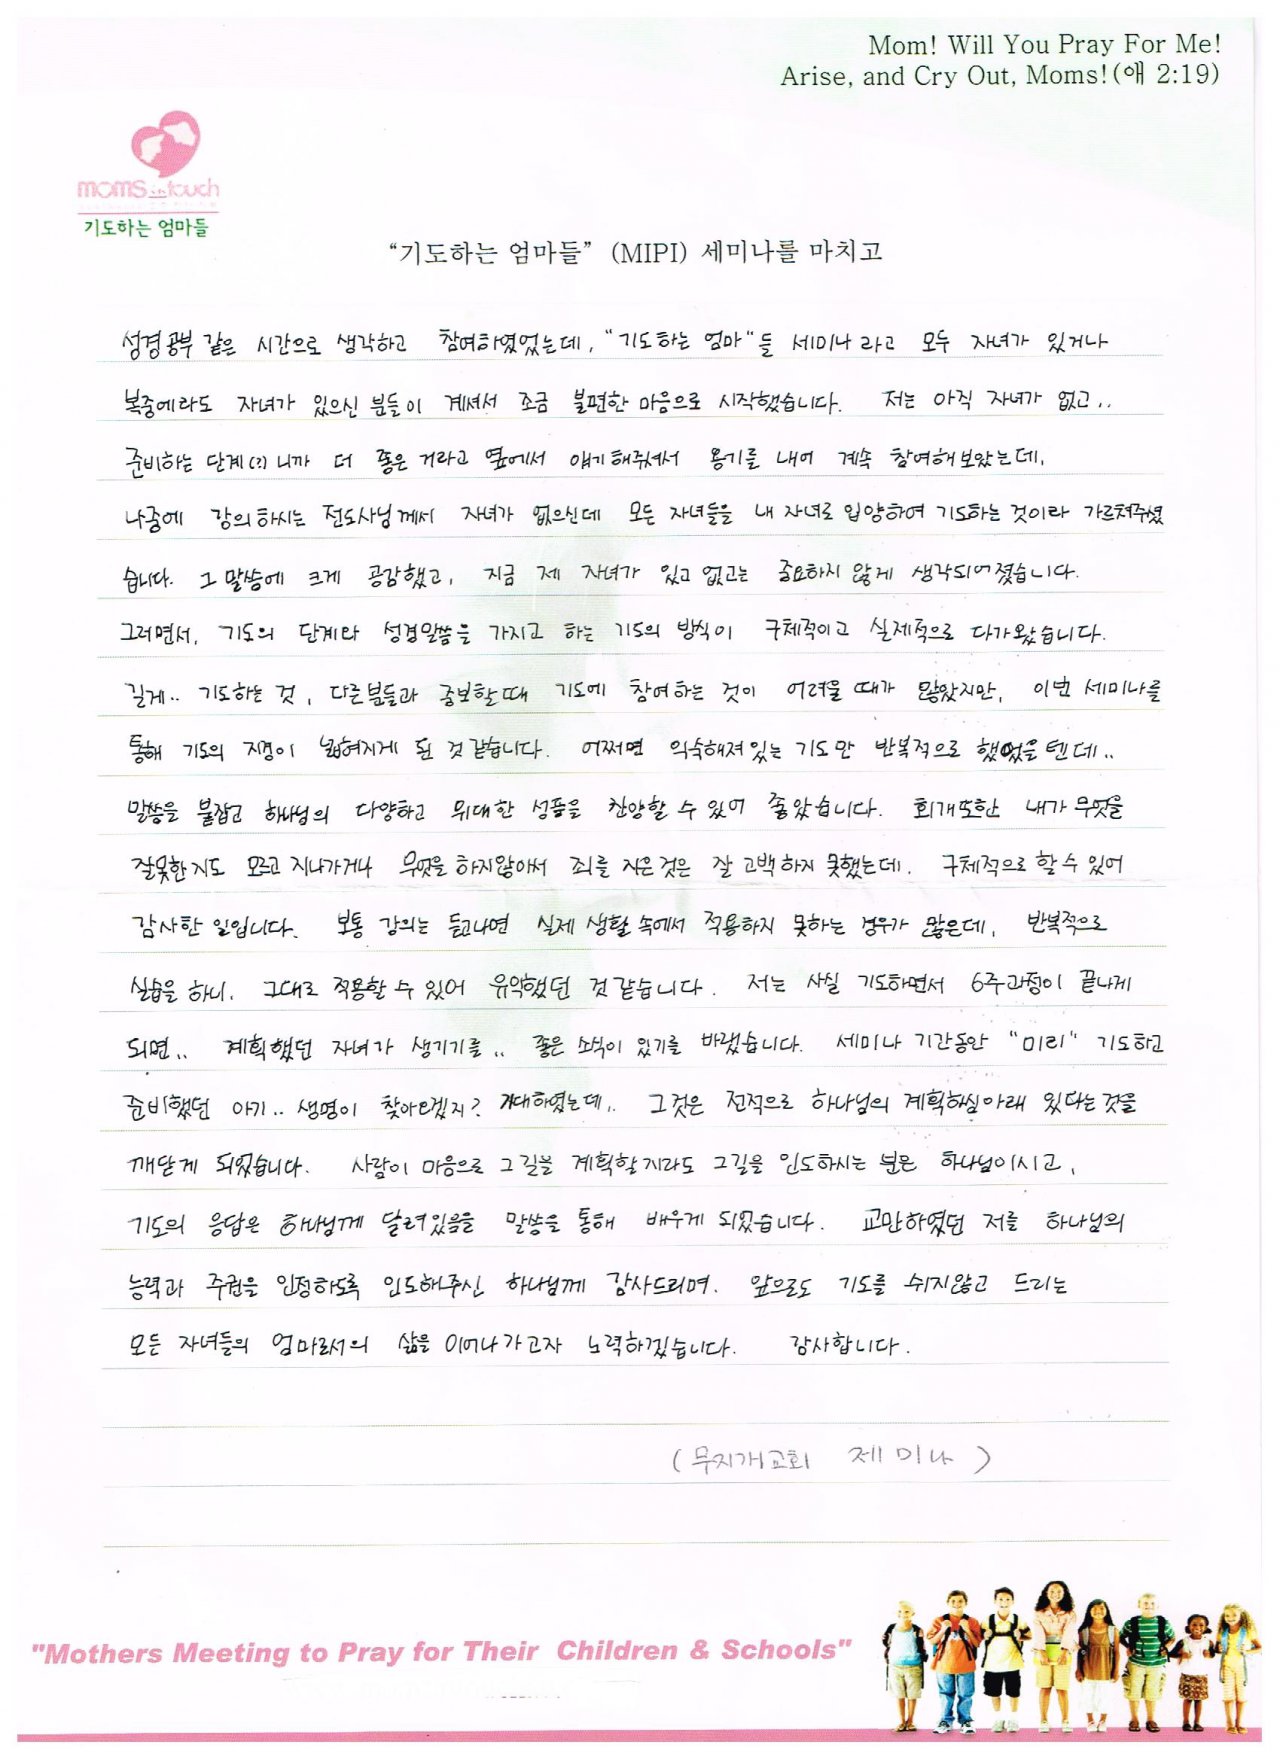 Mom! Will You Pray For Me!
Arise, and Cry Out, Moms!(애 2:19)
moms in touch
기도하는 엄마들
“기도하는 엄마들” (MIPI) 세미나를 마치고
성경공부 같은 시간으로 생각하고 참여하였었는데, "기도하는 엄마"들 세미나 라고 모두 자녀가 있거나
복중에라도 자녀가 있으신 분들이 계셔서 조금 불편한 마음으로 시작했습니다. 저는 아직 자녀가 없고..
준비하는 단계(?) 니까 더 좋은 거라고 옆에서 얘기해주셔서 용기를 내어 계속 참여해보았는데,
나중에 강의하시는 전도사님께서 자녀가 없으신데 모든 자녀들을 내 자녀로 입양하여 기도하는 것이라 가르쳐주셨
습니다. 그 말씀에 크게 공감했고, 지금 제 자녀가 있고 없고는 중요하지 않게 생각되어졌습니다.
그러면서, 기도의 단계와 성경말씀을 가지고 하는 기도의 방식이 구체적이고 실제적으로 다가왔습니다.
길게.. 기도하는 것, 다른분들과 중보할때 기도에 참여하는 것이 어려울 때가 많았지만, 이번 세미나를
통해 기도의 지경이 넓혀지게 된 것 같습니다. 어쩌면 익숙해져있는 기도만 반복적으로 했었을텐데..
말씀을 붙잡고 하나님의 다양하고 위대한 성품을 찬양할 수 있어 좋았습니다. 회개또한 내가 무엇을
잘못한지도 모르고 지나가거나 무엇을 하지않아서 죄를 지은것은 잘 고백하지 못했는데, 구체적으로 할 수 있어
감사한 일입니다. 보통 강의는 듣고나면 실제 생활 속에서 적용하지 못하는 경우가 많은데, 반복적으로
실습을 하니, 그대로 적용할 수 있어 유익했던 것 같습니다. 저는 사실 기도하면서 6주과정이 끝나게
되면.. 계획했던 자녀가 생기기를.. 좋은 소식이 있기를 바랬습니다. 세미나 기간동안 "미리" 기도하고
준비했던 아기.. 생명이 찾아오겠지? 기대하였는데.. 그것은 전적으로 하나님의 계획하심아래 있다는것을
깨닫게 되었습니다. 사람이 마음으로 그길을 계획할지라도 그길을 인도하시는 분은 하나님이시고,
기도의 응답은 하나님께 달려있음을 말씀을 통해 배우게 되었습니다. 교만하였던 저를 하나님의
능력과 주권을 인정하도록 인도해주신 하나님께 감사드리며, 앞으로도 기도를 쉬지않고 드리는
모든 자녀들의 엄마로서의 삶을 이어나가고자 노력하겠습니다. 감사합니다.
(무지개교회 제미나)
"Mothers Meeting to Pray for Their Children & Schools"